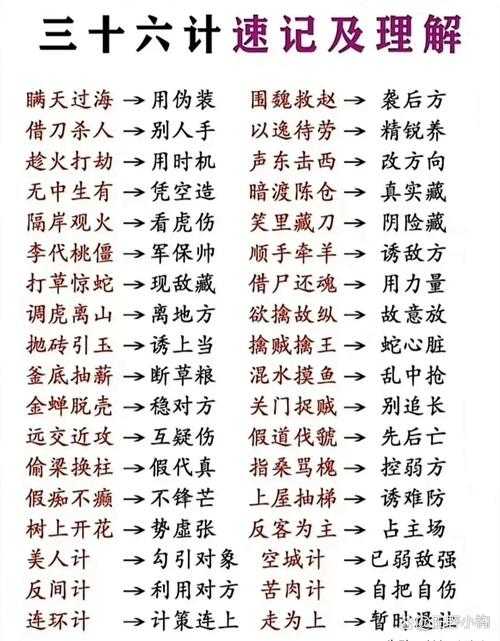 三十六计速记及理解
瞒天过海→用伪装 围魏救赵→袭后方
借刀杀人→别人手 以逸待劳→精锐养
趁火打劫→用时机 声东击西→改方向
无中生有→凭空造 暗渡陈仓→真实藏
隔岸观火→看虎伤 笑里藏刀→阴险藏
李代桃僵→军保帅 顺手牵羊→诱敌方
打草惊蛇→现敌藏 借尸还魂→用力量
调虎离山→离地方 欲擒故纵→故意放
抛砖引玉→诱上当 擒贼擒王→蛇心脏
釜底抽薪→断草粮 混水摸鱼→乱中抢
金蝉脱壳→稳对方 关门捉贼→别追长
远交近攻→互疑伤 假道伐虢→先后亡
偷梁换柱→假代真 指桑骂槐→控弱方
假痴不癫→不锋芒 上屋抽梯→诱难防
树上开花→势虚张 反客为主→占主场
美人计→勾引对象 空城计→已弱敌强
反间计→利用对方 苦肉计→自把自伤
连环计→计策连上 走为上→暂时退让